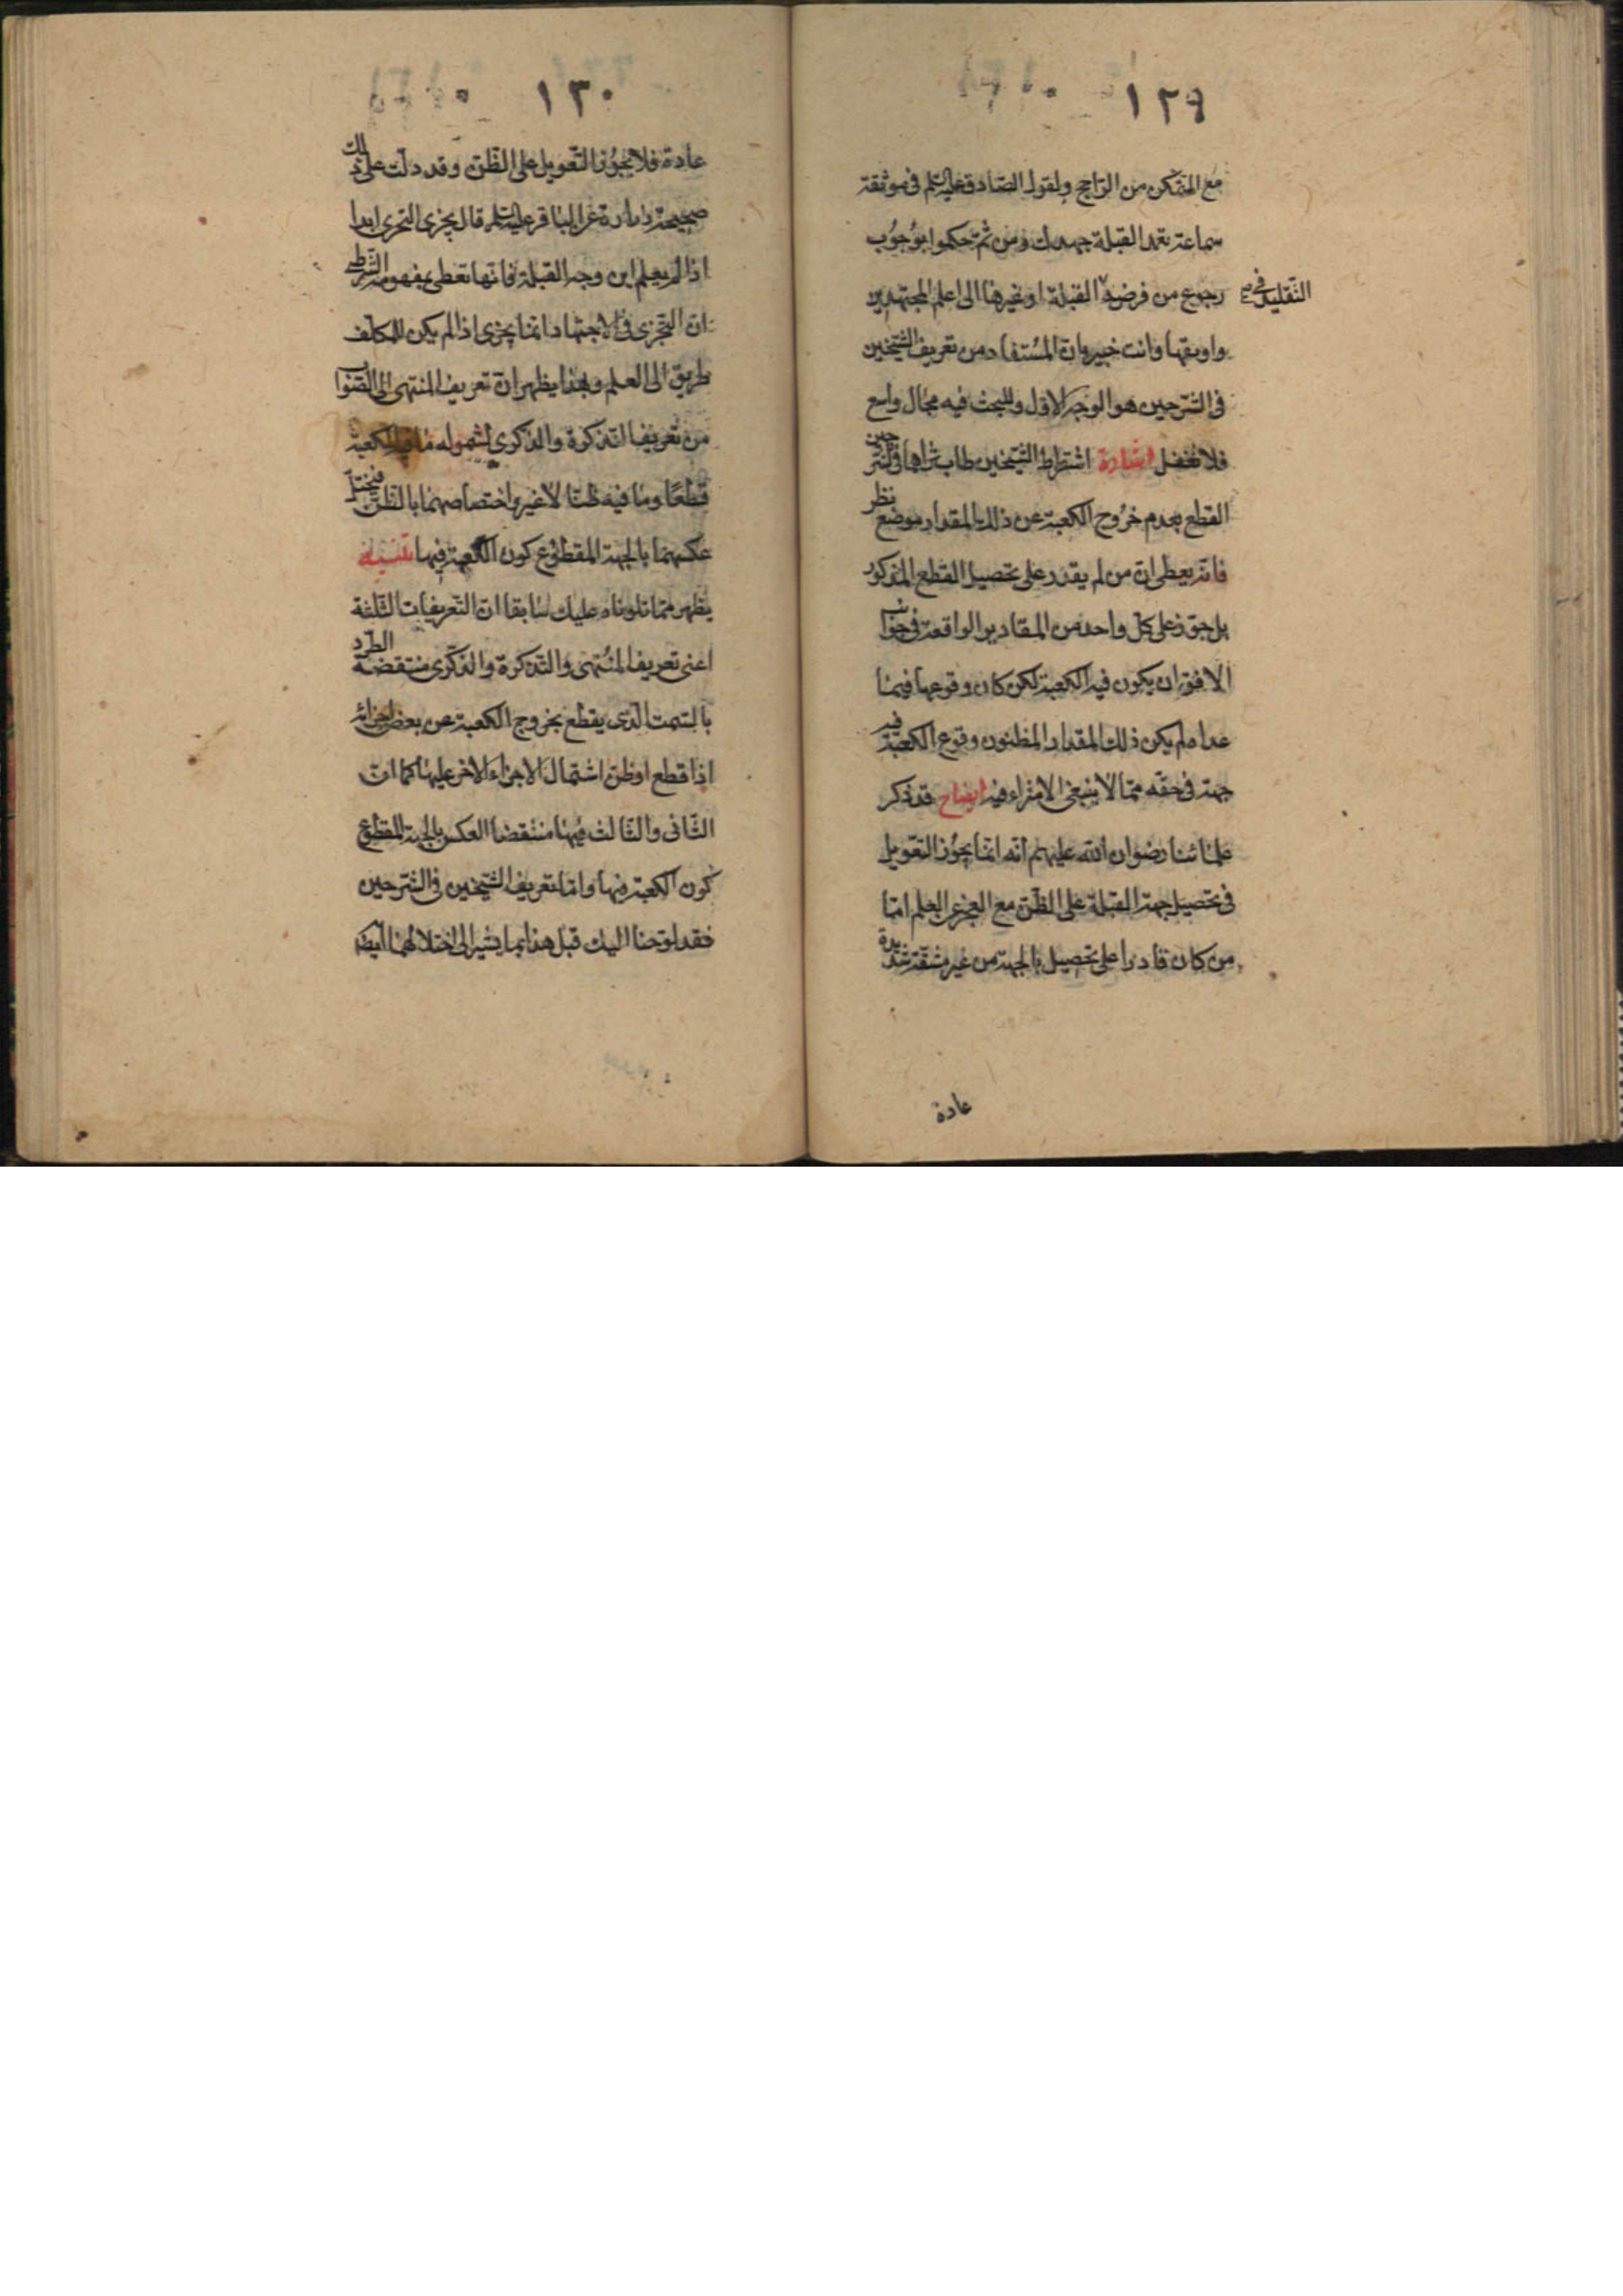 ١٢٩
مع التمكن من الراجح ولقول الصادق عليه السلم فى موثقة
سماعة تعمد القبلة جهدك ومن ثم حكموا بوجوب
رجوع من فرضه القبلة او غيرها الى اعلم المجتهدين
التقليد فى
واوثقها وانت خبير بان المستفاد من تعريف الشيخين
فى الشرحين هو الوجه الاول وللبحث فيه مجال واسع
فلا تغفل اشارة اشتراط الشيخين طاب ثراهما فى الشرحين
القطع بعدم خروج الكعبة عن ذلك المقدار موضع نظر
فانه يعطى ان من لم يقدر على تحصيل القطع المذكور
بل جوز على كل واحد من المقادير الواقعة فى جوانب
الافق ان يكون فيه الكعبة لكن كان وقوعها فيما
عداه لم يكن ذلك المقدار المظنون وقوع الكعبة فيه
جهة فى حقه مما لا ينبغى الامتراء فيه ايضاح قد ذكر
علمائنا رضوان الله عليهم انه انما يجوز التعويل
فى تحصيل جهة القبلة على الظن مع العجز عن العلم اما
من كان قادرا على تحصيل بالجهة من غير مشقة شديدة
عادة
١٣٠
عادة فلا يجوز التعويل على الظن وقد دلت على ذلك
صحيحة زرارة عن الباقر عليه السلم قال يجزى التحرى ابدا
اذا لم يعلم اين وجه القبلة فانها تعطى بمفهومه الشرط
ان التجزى فى الاجتهاد انما يجزى اذا لم يكن للمكلف
طريق الى العلم وبهذا يظهر ان تعريف المنتهى الى الصواب
من تعريف التذكرة والذكرى لشموله ما فيه الكعبة
قطعا وما فيه ظنا لا غير واختصاصهما بالظن فيختل
عكسهما بالجهة المقطوع كون الكعبة فيها تنبيه
يظهر مما تلوناه عليك سابقا ان التعريفات الثلثة
اعنى تعريف المنتهى والتذكرة والذكرى منتقضة الطرد
بالسمت الذى يقطع بخروج الكعبة عن بعض اجزائه
اذا قطع او ظن اشتمال الاجزاء الاخر عليها كما ان
الثانى والثالث منها منتقضا العكس بالجهة المقطوع
كون الكعبة فيها واما تعريف الشيخين فى الشرحين
فقد لوحنا اليك قبل هذا بما يشير الى اختلالهما ايضا